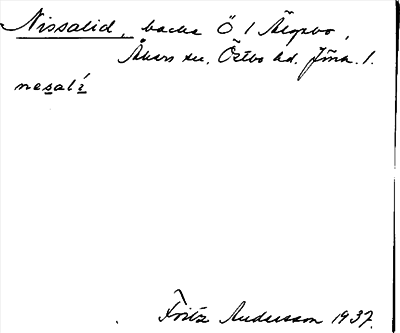 Nissalid, backe Ö 1 Älgabo,
Åkers sn. Östbo hd. Jfrn. l.
nesalí
Fritz Andersson 1937.